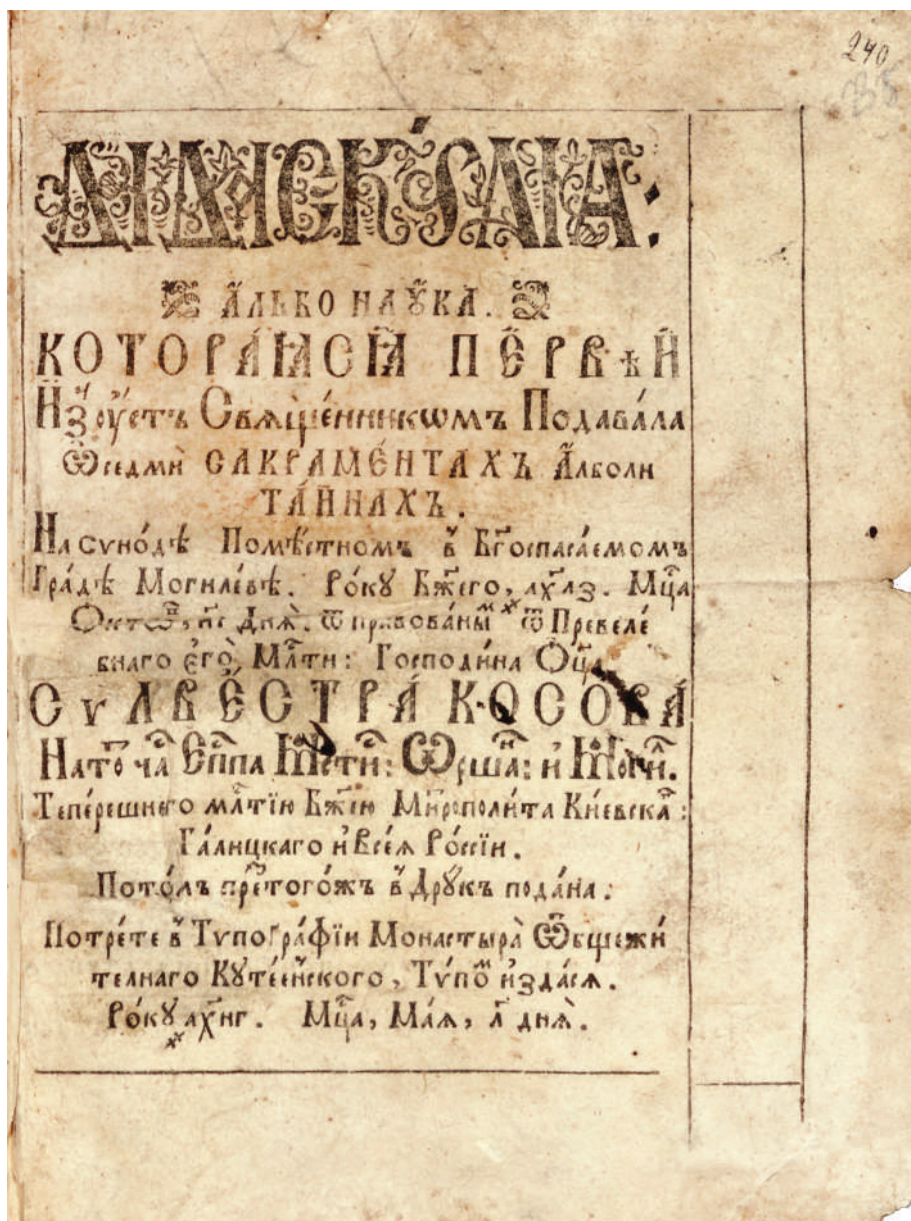 240
ДІДАСКАЛІА:
А҆́льбо наꙋ́ка.
КОТОРА́ѦСІѦ ПЕ́РВѢЙ
И҆зꙋ́стъ Свѧще́нникѡмъ Подава́ла
Ѡ҆седми̇̀ САКРАМЕ́НТАХЪ А҆́лболи
ТА́ЙНАХЪ.
На сѵно́дѣ Помѣ́стномъ в̾ Бг҃оспаса́емомъ
Гра́дѣ Могиле́вѣ. Ро́кꙋ Бж҃его, ах҃лз. Мц҃а
Дна̀. ѿправова́ныⷨ ѿ Превеле́
бнаго є҆гѡ̀, Млⷭ҇ти: Господи́на Оц҃а
СѴЛВЕ́СТРА КОСО́ВА
Натоⷮ ча Еп҃па Мстиⷭ: Ѡршаⷩ: и Могиⷧ.
Тепе́решнего млⷭ҇тїю Бж҃їею Митрополи́та Кі́евскаⷢ:
Га́лицкаго и҆ Всеѧ̀ Ро́ссїи.
Пото́мъ пре́тогожъ в̾ Дрꙋ́къ пода́на:
Потре́те в̾ Тѵпогра́фїи Монастыра̀ Ѡбщежи́
телнаго Кꙋтее́нского, Тѵ́поⷨ и҆зда́сѧ.
Ро́кꙋ ах҃нг. Мц҃а, Ма́ѧ, л҃ днѧ̀.